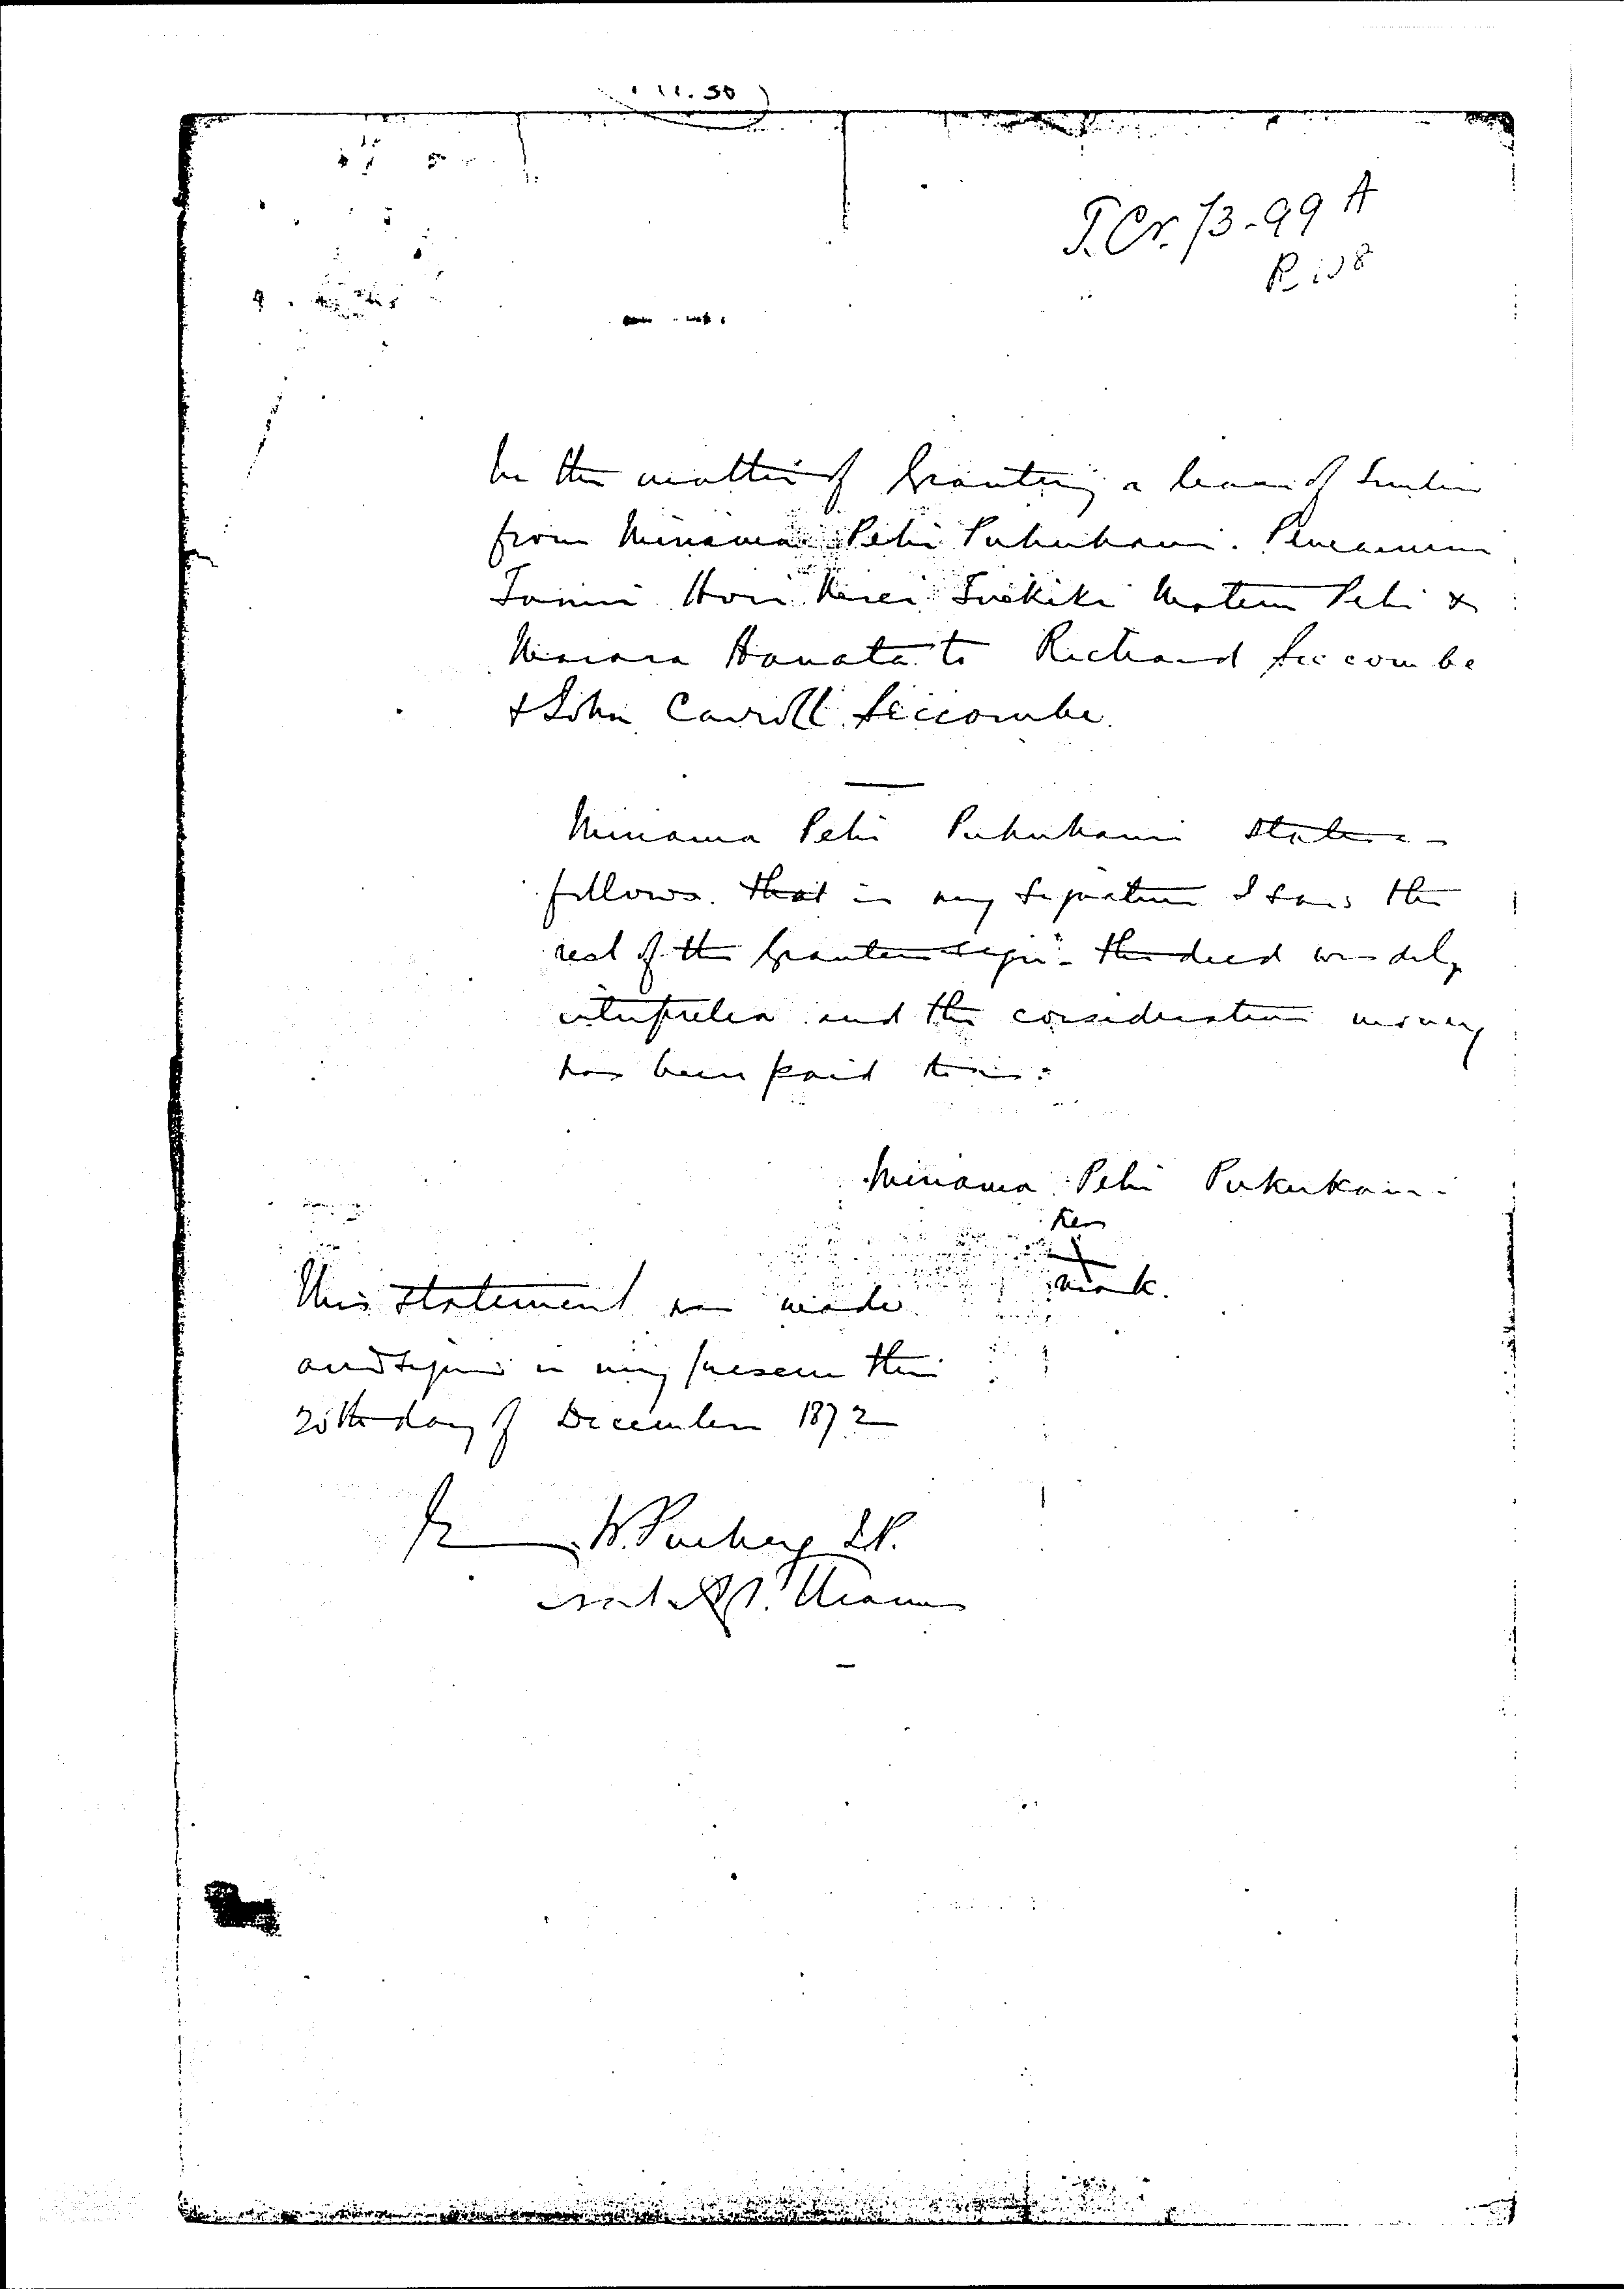 11.50
T.Cr. 13-99 A
In the matter of Granting a lease of
from Miriama Pehi Pukukauri.
Hori Kerei Tuokioki Matena Pehi &
Harata to Richard Seccombe
& John Carroll Seccombe.
Miriama Pehi Pukukauri states as
follows. That is my signature I saw the
rest of the Grantees sign - the deed was duly
interpreted and the consideration money
has been paid to us.
Miriama Pehi Pukukauri
her
X
mark.
This statement was made
and signed in my presence this
20th day of December 1872
W. Puckey J.P.